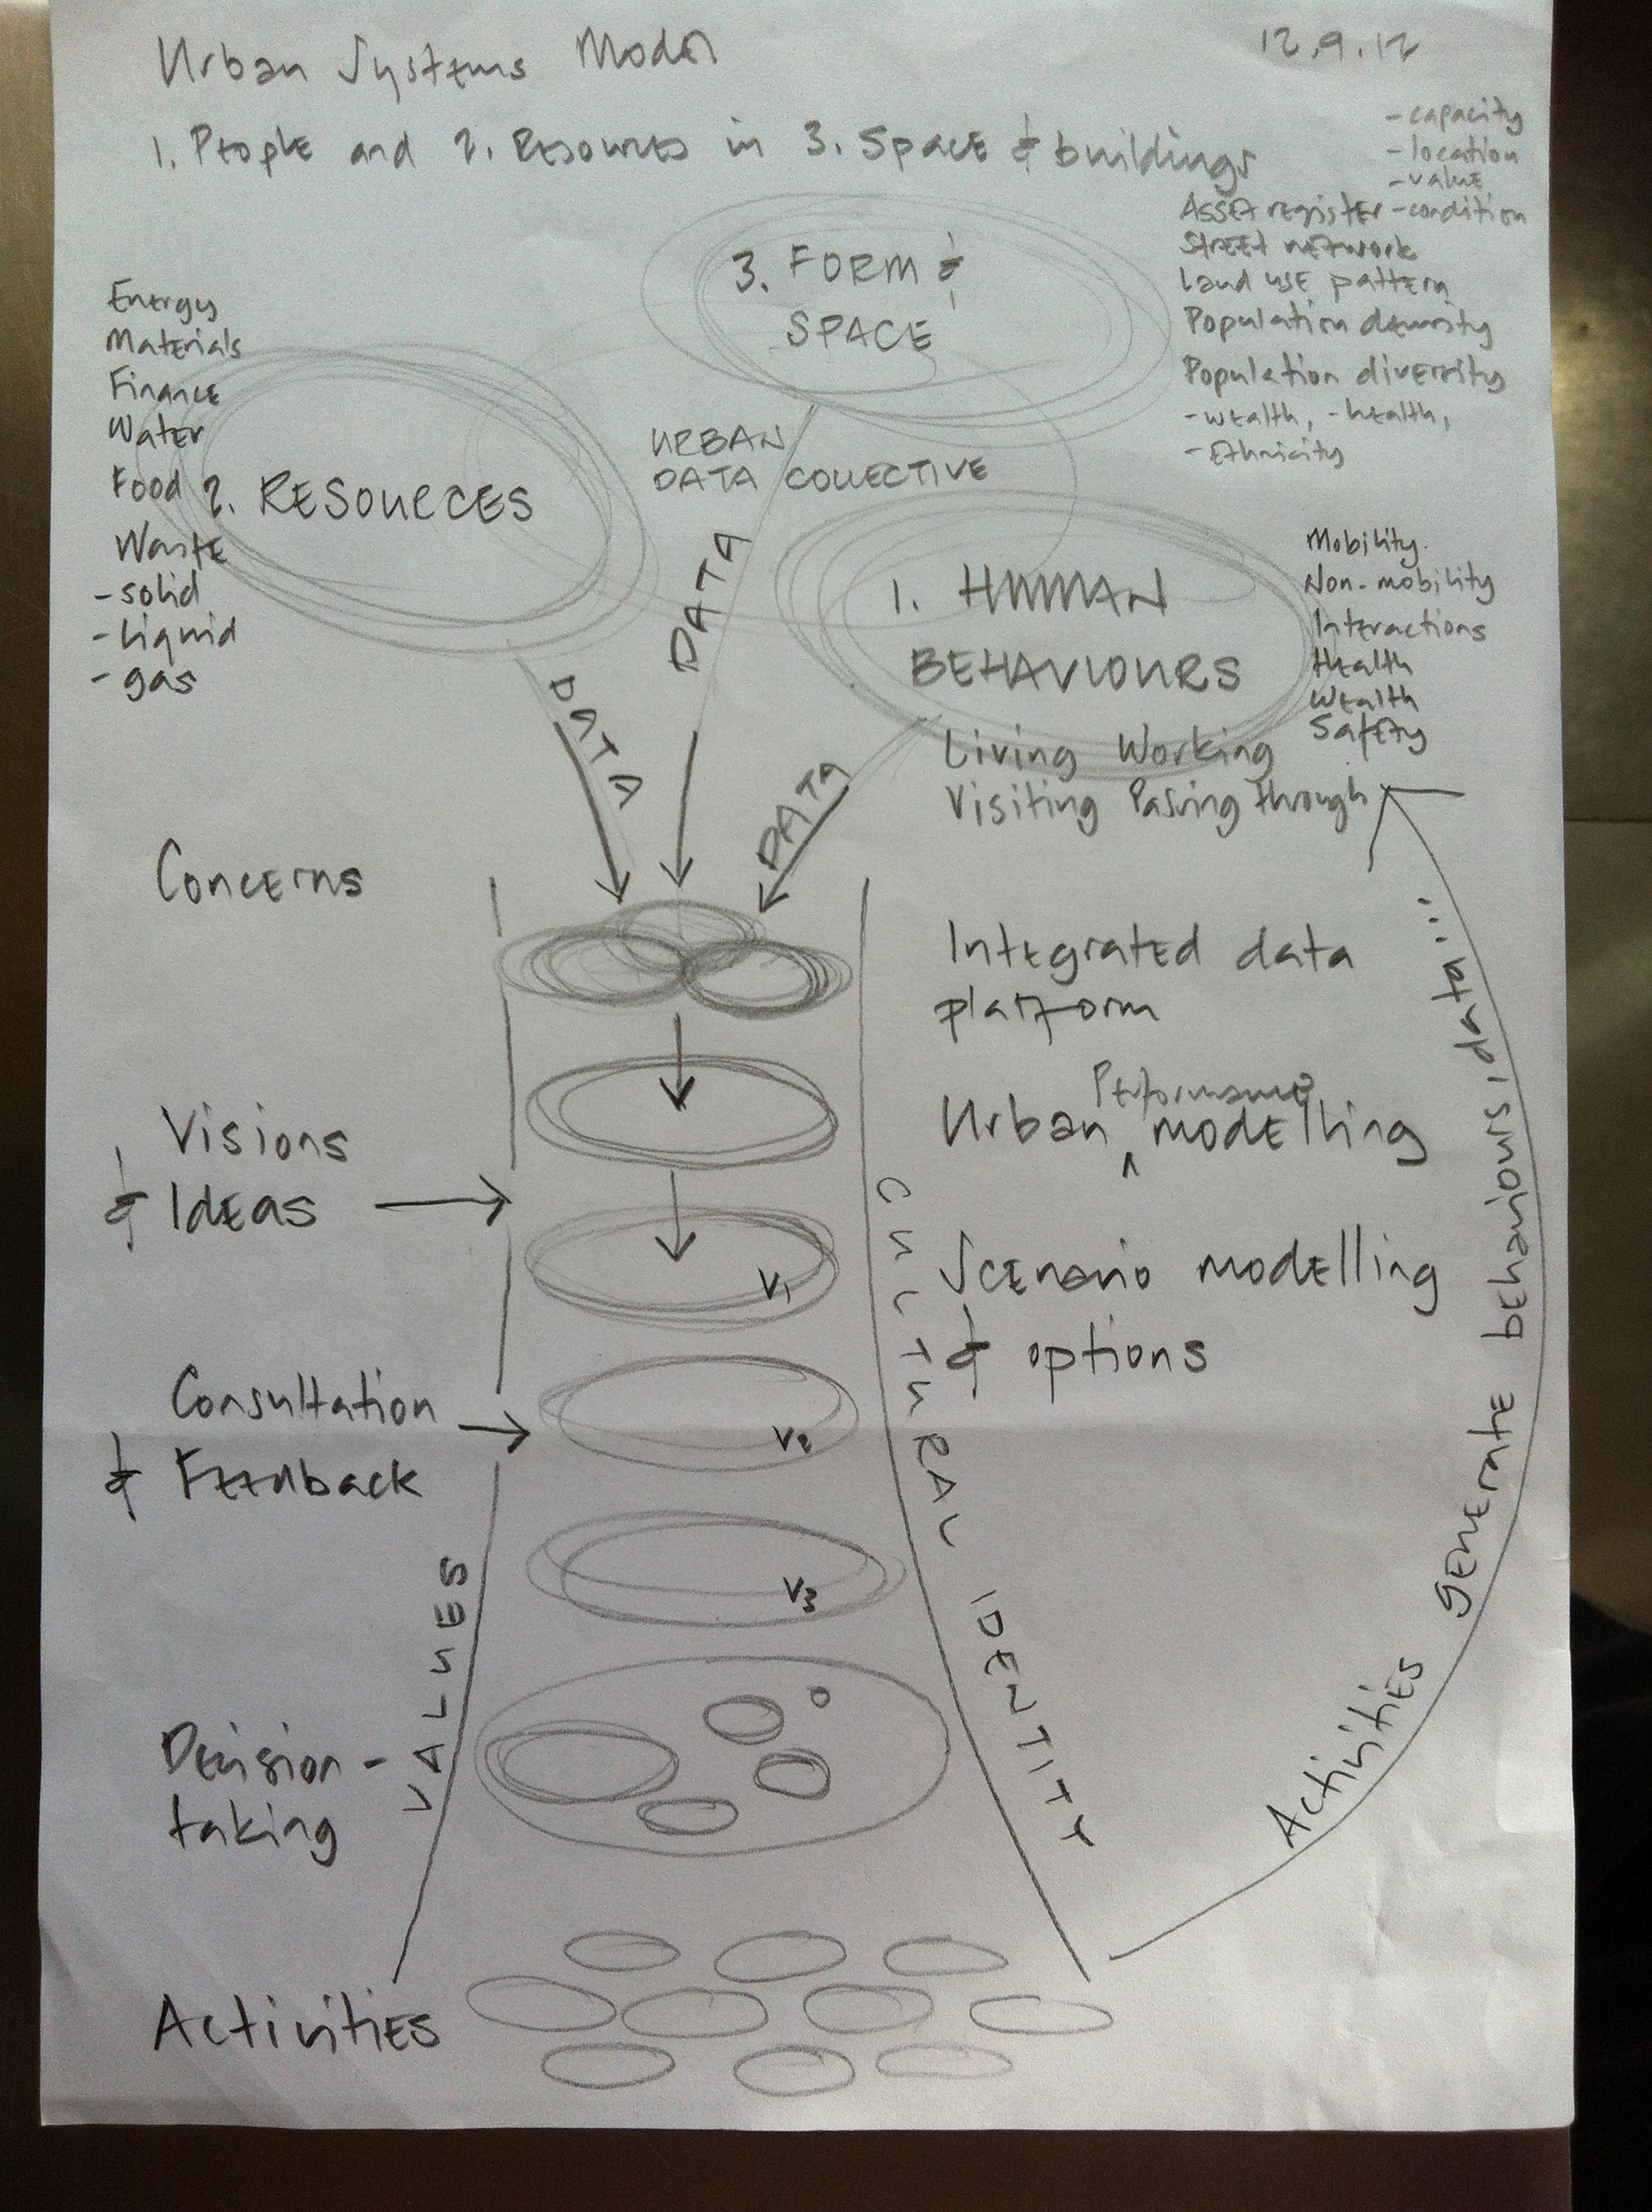 Urban Systems Model
12.9.12
1. People and 2. Resources in 3. Space & buildings
- capacity
- location
- value
Asset register - condition
Street network
Land use pattern
Population density
Population diversity
- wealth, - health,
- Ethnicity
3. FORM &
SPACE
Energy
Materials
Finance
Water
Food
Waste
- solid
- liquid
- gas
2. RESOURCES
URBAN
DATA COLLECTIVE
1. HUMAN
BEHAVIOURS
Mobility
Non-mobility
Interactions
Health
Wealth
Safety
Living Working
Visiting Passing through
DATA
DATA
DATA
Concerns
Integrated data
platform
Visions
& Ideas
Urban Performance modelling
V1
Scenario modelling
& options
Consultation
& Feedback
V2
V3
VALUES
CULTURAL IDENTITY
Decision-
taking
Activities
Activities generate behaviours, data...